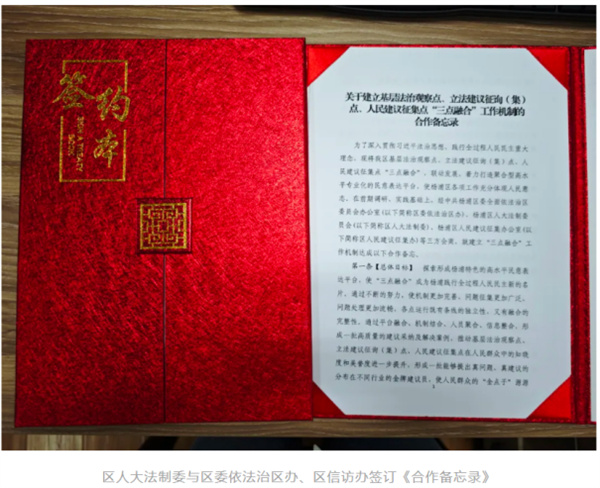 签约本
关于建立基层法治观察点、立法建议征询（集）
点、人民建议征集点“三点融合”工作机制的
合作备忘录
为了深入贯彻习近平法治思想，践行全过程人民民主重大
理念，现将我区基层法治观察点、立法建议征询（集）点、人
民建议征集点“三点融合”、联动发展，着力打造聚合型高水
平专业化的民意表达平台，使杨浦区各项工作充分体现人民意
志，在前期调研、实践基础上，经中共杨浦区委全面依法治区
委员会办公室（以下简称区委依法治区办）、杨浦区人大法制委
员会（以下简称区人大法制委）、杨浦区人民建议征集办公室（以
下简称区人民建议征集办）等三方会商，就建立“三点融合”工
作机制达成以下合作备忘。
第一条【总体目标】 探索形成杨浦特色的高水平民意表
达平台，使“三点融合”成为杨浦践行全过程人民民主新的名
片。通过不断的努力，使机制更加完善，问题征集更加广泛，
问题处理更加流畅，各点运行既有条线的独立性，又有融合的
完整性。通过平台融合、机制结合、人员聚合、信息整合，形
成一批高质量的建议采纳及解决案例，推动基层法治观察点、
立法建议征询（集）点、人民建议征集点在人民群众中的知晓
度和美誉度进一步提升，形成一批能够提出真问题、真建议的
分布在不同行业的金牌建议员，使人民群众的“金点子”源源
1
区人大法制委与区委依法治区办、区信访办签订《合作备忘录》